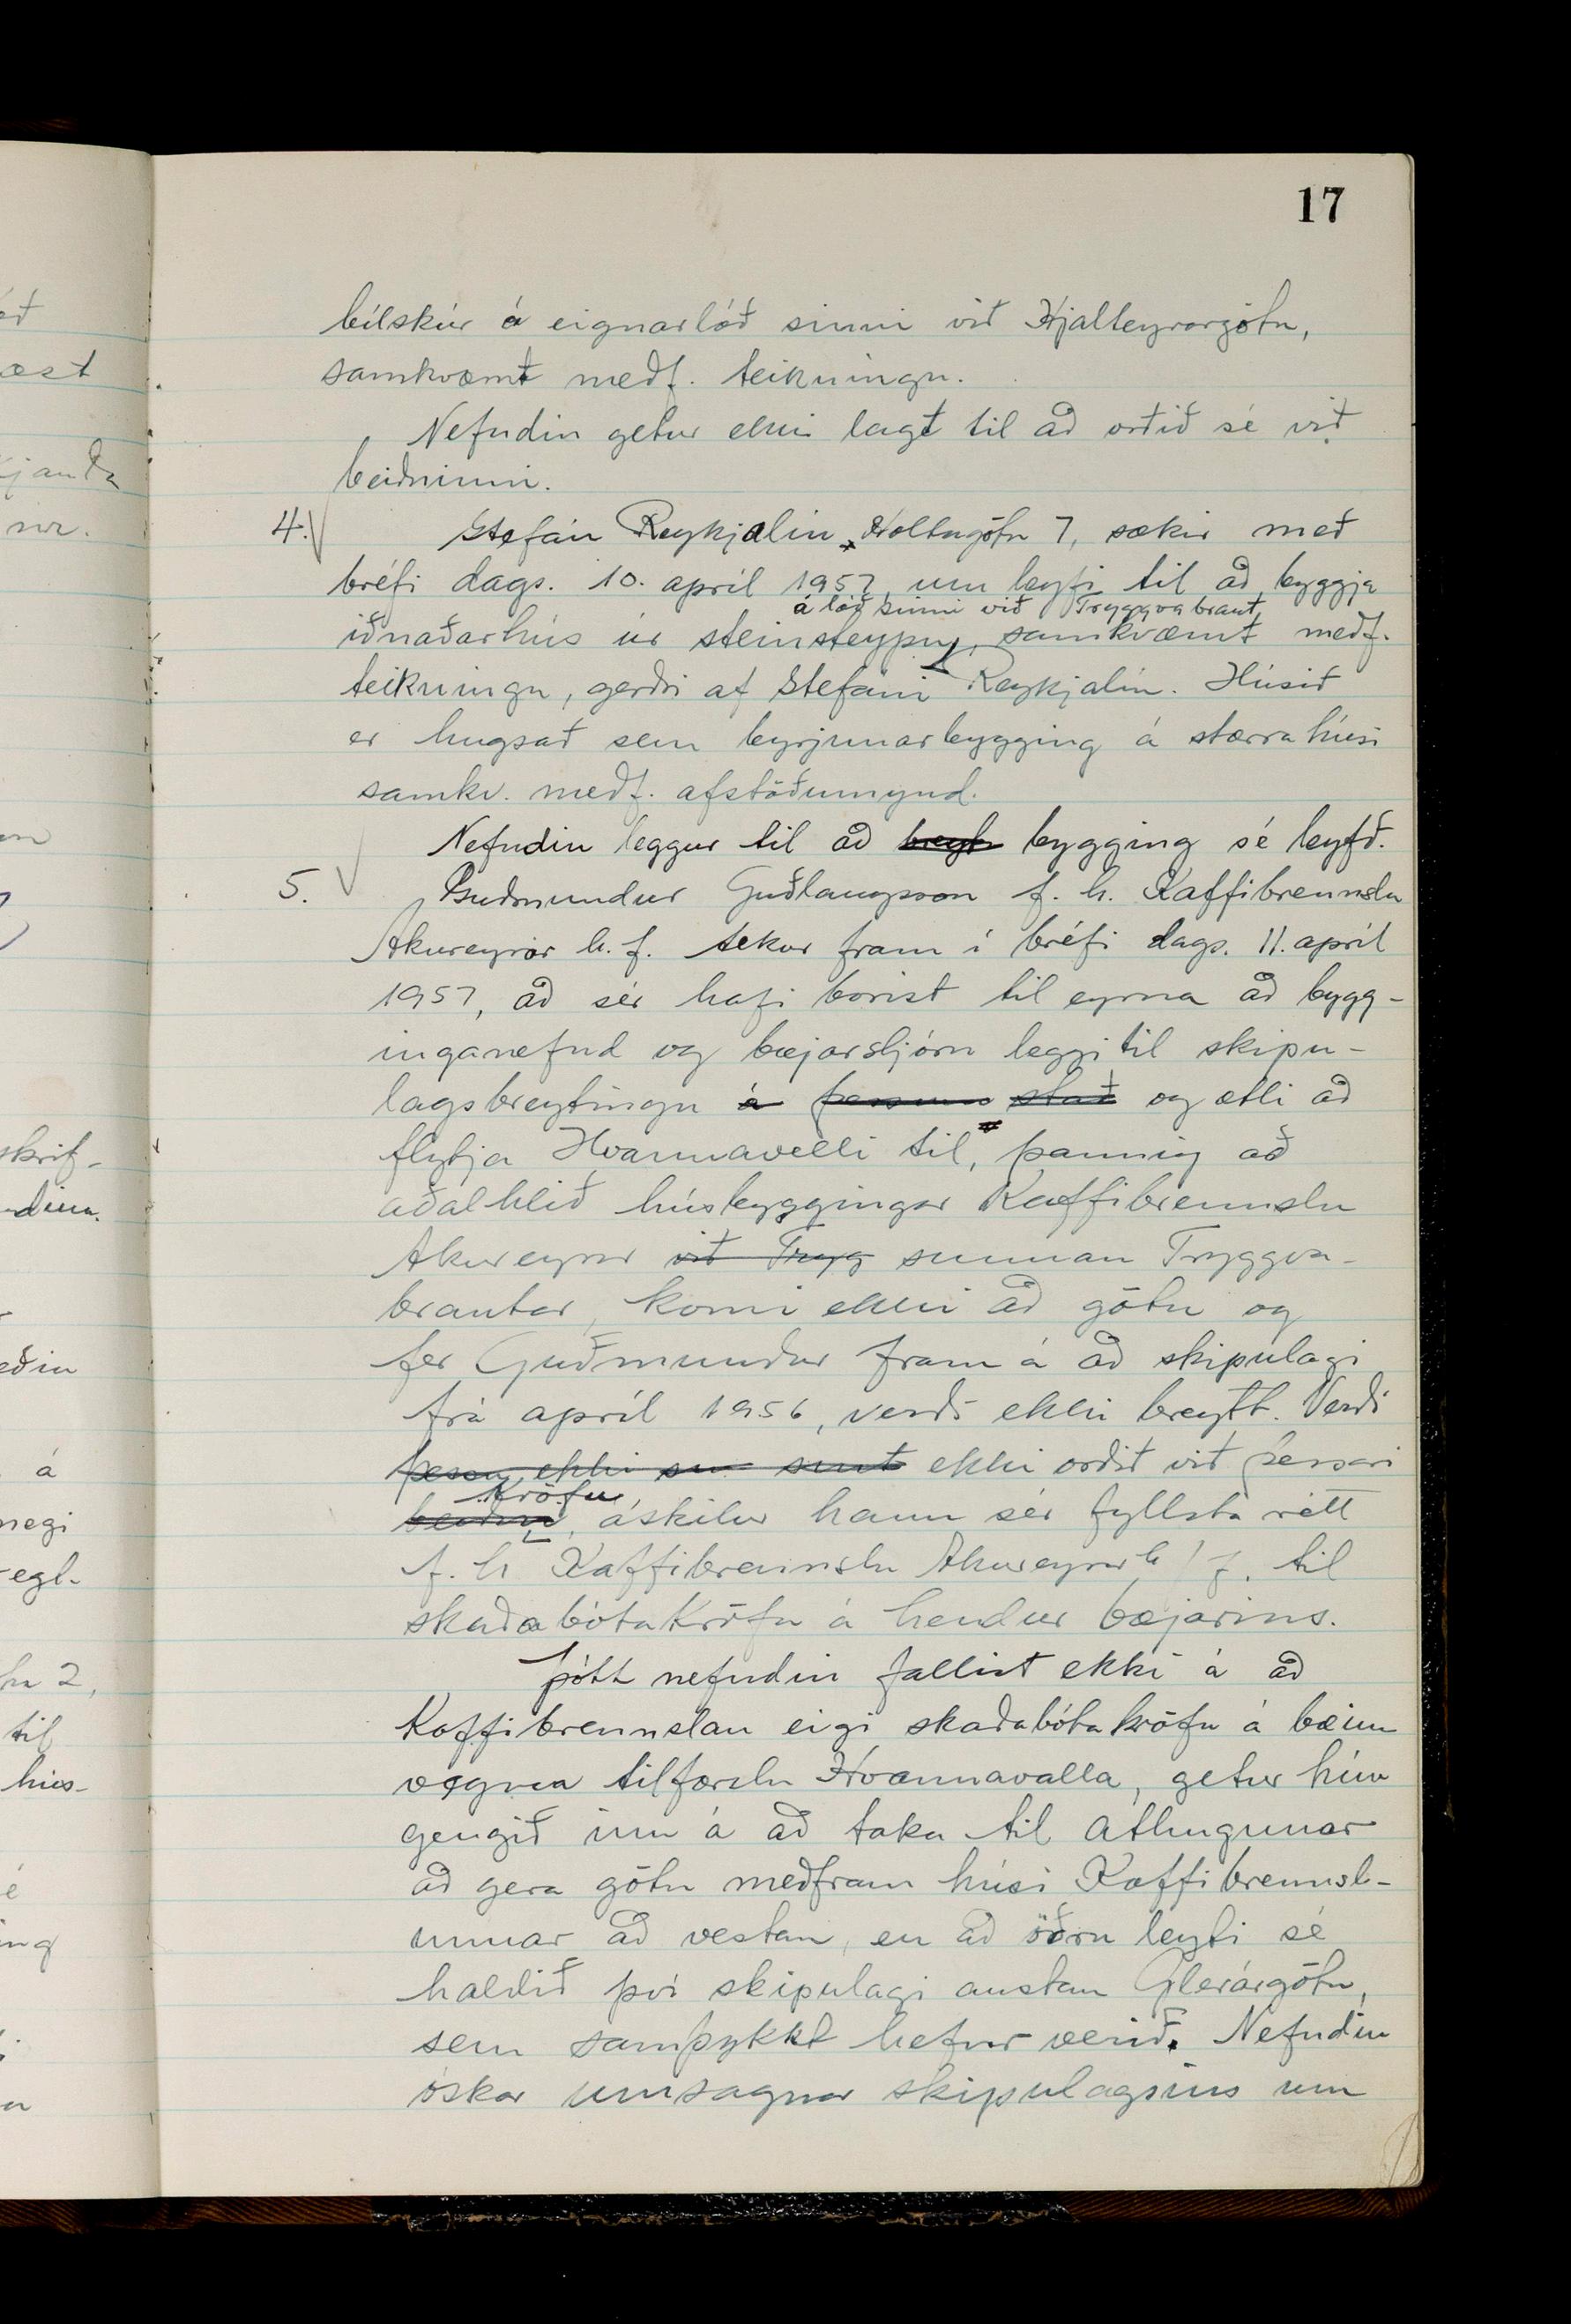 17
bílskúr á eignarlóð sinni við Hjalteyrargötu,
samkvæmt meðf. teikningu.
Nefndin getur ekki lagt til að orðið sé við
beiðninni.
4. Stefán Reykjalín, Holtagötu 7, sækir með
bréfi dags. 10. apríl 1957 um leyfi til að byggja
á lóð sinni við Tryggvabraut,
iðnaðarhús úr steinsteypu, samkvæmt meðf.
teikningu, gerðri af Stefáni Reykjalín. Húsið
er hugsað sem byrjunarbygging á stærra húsi
samkv. meðf. afstöðumynd.
Nefndin leggur til að bygging sé leyfð.
5. Guðmundur Guðlaugsson f. h. Kaffibrennslu
Akureyrar h.f. tekur fram í bréfi dags. 11. apríl
1957, að sér hafi borist til eyrna að bygg-
inganefnd og bæjarstjórn leggi til skipu-
lagsbreytingu á þessum stað og ætli að
flytja Hvannavelli til, þannig að
aðalhlið húsbyggingar Kaffibrennslu
Akureyrar við Trygg sunnan Tryggva-
brautar, komi ekki að götu og
fer Guðmundur fram á að skipulagi
frá apríl 1956, verði ekki breytt. Verði
ekki orðið við þessari
kröfu
beiðni, áskilur hann sér fyllsta rétt
f. h. Kaffibrennslu Akureyrar h/f. til
skaðabótakröfu á hendur bæjarins.
Þótt nefndin fallist ekki á að
Kaffibrennslan eigi skaðabótakröfu á bæinn
vegna tilfærslu Hvannavalla, getur hún
gengið inn á að taka til athugunar
að gera götu meðfram húsi Kaffibrennsl-
unnar að vestan, en að öðru leyti sé
haldið því skipulagi austan Glerárgötu,
sem samþykkt hefur verið. Nefndin
óskar umsagnar skipulagsins um